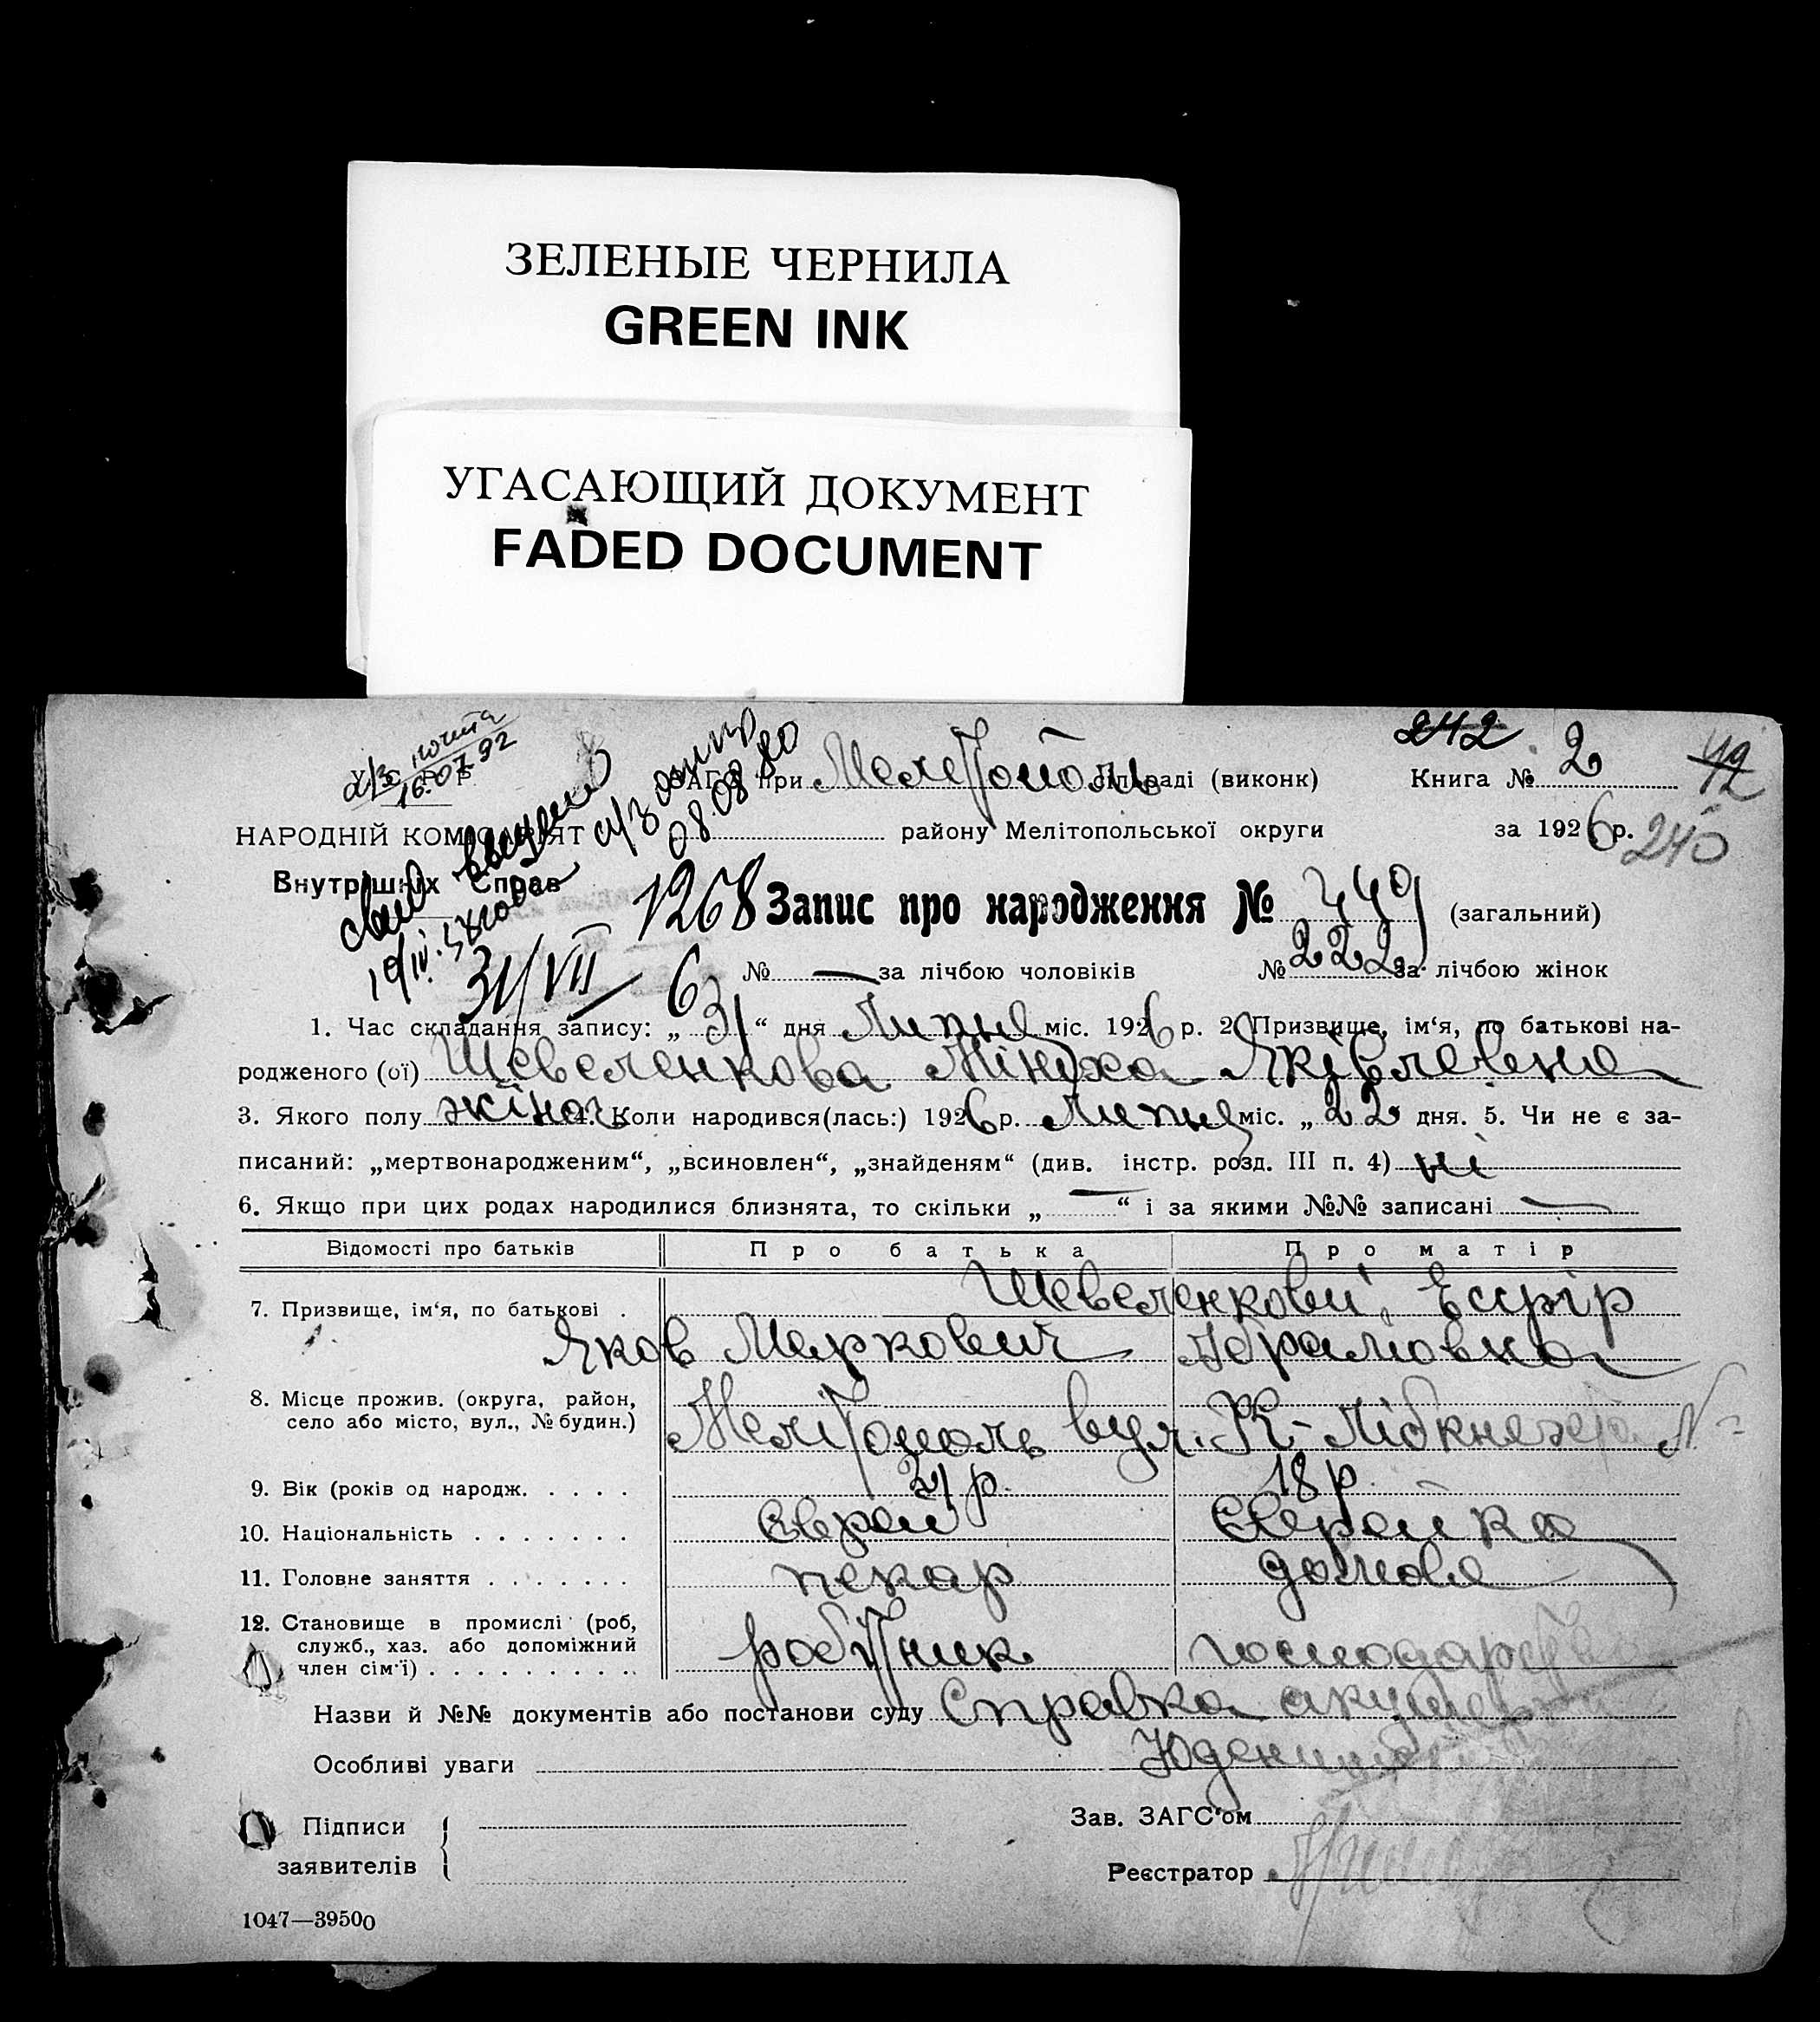 ЗЕЛЕНЫЕ ЧЕРНИЛА
GREEN INK
УГАСАЮЩИЙ ДОКУМЕНТ
FADED DOCUMENT
242
почта
16.07.92
08.08.80
ЗАГС при Мелетополь міськраді (виконк) Книга № 2 42
НАРОДНІЙ КОМІСАРІЯТ району Мелітопольської округи за 1926 р. 240
Внутрішніх Справ
1268 Запис про народження № 449 (загальний)
31/VII 6
№ — за лічбою чоловіків № 222 за лічбою жінок
1. Час складання запису: „31“ дня Липня міс. 1926 р. 2. Призвище, ім‘я, по батькові на-
родженого (ої) Шевеленкова Мініха Яківлевна
3. Якого полу жіноч 4. Коли народився(лась:) 1926 р. Липня міс. „22 дня. 5. Чи не є за-
писаний: „мертвонародженим“, „всиновлен“, „знайденям“ (див. інстр. розд. III п. 4) ні
6. Якщо при цих родах народилися близнята, то скільки „—“ і за якими №№ записані —
Відомості про батьків Про батька Про матір
7. Призвище, ім‘я, по батькові . Шевеленкови, Есфір
Яков Маркович Абрамовна
8. Місце прожив. (округа, район,
село або місто, вул., № будин.) Мелітополь вул. К-Лібкнехта №
9. Вік (років од народж. . . . . 21 р. 18 р.
10. Національність . . . . . . . Єврей Єврейка
11. Головне заняття . . . . . . . пекар домова
12. Становище в промислі (роб,
служб., хаз. або допоміжний
член сім‘ї) . . . . . . . . . . робітник господарства
Назви й №№ документів або постанови суду Справка акушерки
Особливі уваги
Підписи
заявителів
Зав. ЗАГС‘ом
Реєстратор
1047—39500